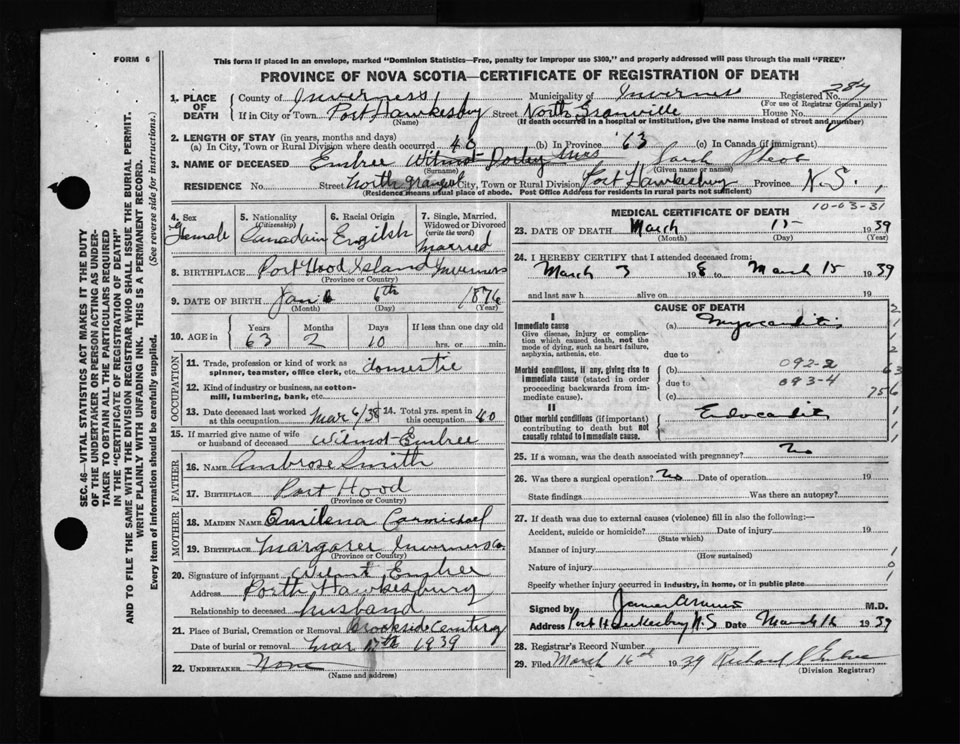 FORM 6
This form if placed in an envelope, marked "Dominion Statistics—Free, penalty for improper use $300," and properly addressed will pass through the mail "FREE"
PROVINCE OF NOVA SCOTIA—CERTIFICATE OF REGISTRATION OF DEATH
284
1. PLACE OF DEATH County of Inverness Municipality of Inverness Registered No.
(For use of Registrar General only)
If in City or Town Port Hawkesbury Street North Granville House No.
(If death occurred in a hospital or institution, give the name instead of street and number)
2. LENGTH OF STAY (in years, months and days)
(a) In City, Town or Rural Division where death occurred 40 (b) In Province 63 (c) In Canada (if immigrant)
3. NAME OF DECEASED Embree Wilmot Mrs Sarah
(Surname) (Given name or names)
RESIDENCE No. Street North City, Town or Rural Division Port Hawkesbury Province N.S.
(Residence means usual place of abode. Post Office Address for residents in rural parts not sufficient)
4. Sex Female
5. Nationality (Citizenship) Canadain
6. Racial Origin Engilsh
7. Single, Married, Widowed or Divorced (write the word) Married
8. BIRTHPLACE Port Hood Island Inverness
(Province or Country)
9. DATE OF BIRTH Jan 6th 1876
(Month) (Day) (Year)
10. AGE in Years Months Days If less than one day old
63 2 10 hrs. or min.
OCCUPATION
11. Trade, profession or kind of work as spinner, teamster, office clerk, etc. domestic
12. Kind of industry or business, as cotton-mill, lumbering, bank, etc.
13. Date deceased last worked at this occupation Mar 6/38 14. Total yrs. spent in this occupation 40
15. If married give name of wife or husband of deceased Wilmot Embree
FATHER
16. NAME Ambrose Smith
17. BIRTHPLACE Port Hood
(Province or Country)
MOTHER
18. MAIDEN NAME Carmichael
19. BIRTHPLACE Margaree Inverness Co.
(Province or Country)
20. Signature of informant Wilmot Embree
Address Porth Hawkesburg
Relationship to deceased husband
21. Place of Burial, Cremation or Removal Brookside Cemtry
Date of burial or removal Mar 17th 1939
22. UNDERTAKER None
(Name and address)
10-03-31
MEDICAL CERTIFICATE OF DEATH
23. DATE OF DEATH March 15 1939
(Month) (Day) (Year)
24. I HEREBY CERTIFY that I attended deceased from:
March 3 198 to March 15 1939
and last saw h alive on 19
CAUSE OF DEATH
I
Immediate cause (a) Myocarditis
Give disease, injury or complication which caused death, not the mode of dying, such as heart failure, asphyxia, asthenia, etc.
due to
Morbid conditions, if any, giving rise to immediate cause (stated in order proceeding backwards from immediate cause).
092-2
(b)
due to 093-4
(c)
II
Other morbid conditions (if important) contributing to death but not causally related to immediate cause. Endocarditis
2
1
1
2
63
756
1
1
1
25. If a woman, was the death associated with pregnancy? No
26. Was there a surgical operation? No Date of operation 19
State findings Was there an autopsy?
27. If death was due to external causes (violence) fill in also the following:—
Accident, suicide or homicide? Date of injury 19
(State which)
Manner of injury
(How sustained)
Nature of injury
Specify whether injury occurred in industry, in home, or in public place
1
0
1
Signed by M.D.
Address Port Hawkesbury N.S Date March 16 1939
28. Registrar's Record Number
29. Filed March 16 1939
(Division Registrar)
SEC. 46—VITAL STATISTICS ACT MAKES IT THE DUTY
OF THE UNDERTAKER OR PERSON ACTING AS UNDER-
TAKER TO OBTAIN ALL THE PARTICULARS REQUIRED
IN THE "CERTIFICATE OF REGISTRATION OF DEATH"
AND TO FILE THE SAME WITH THE DIVISION REGISTRAR WHO SHALL ISSUE THE BURIAL PERMIT.
WRITE PLAINLY WITH UNFADING INK. THIS IS A PERMANENT RECORD.
Every item of information should be carefully supplied. (See reverse side for instructions.)